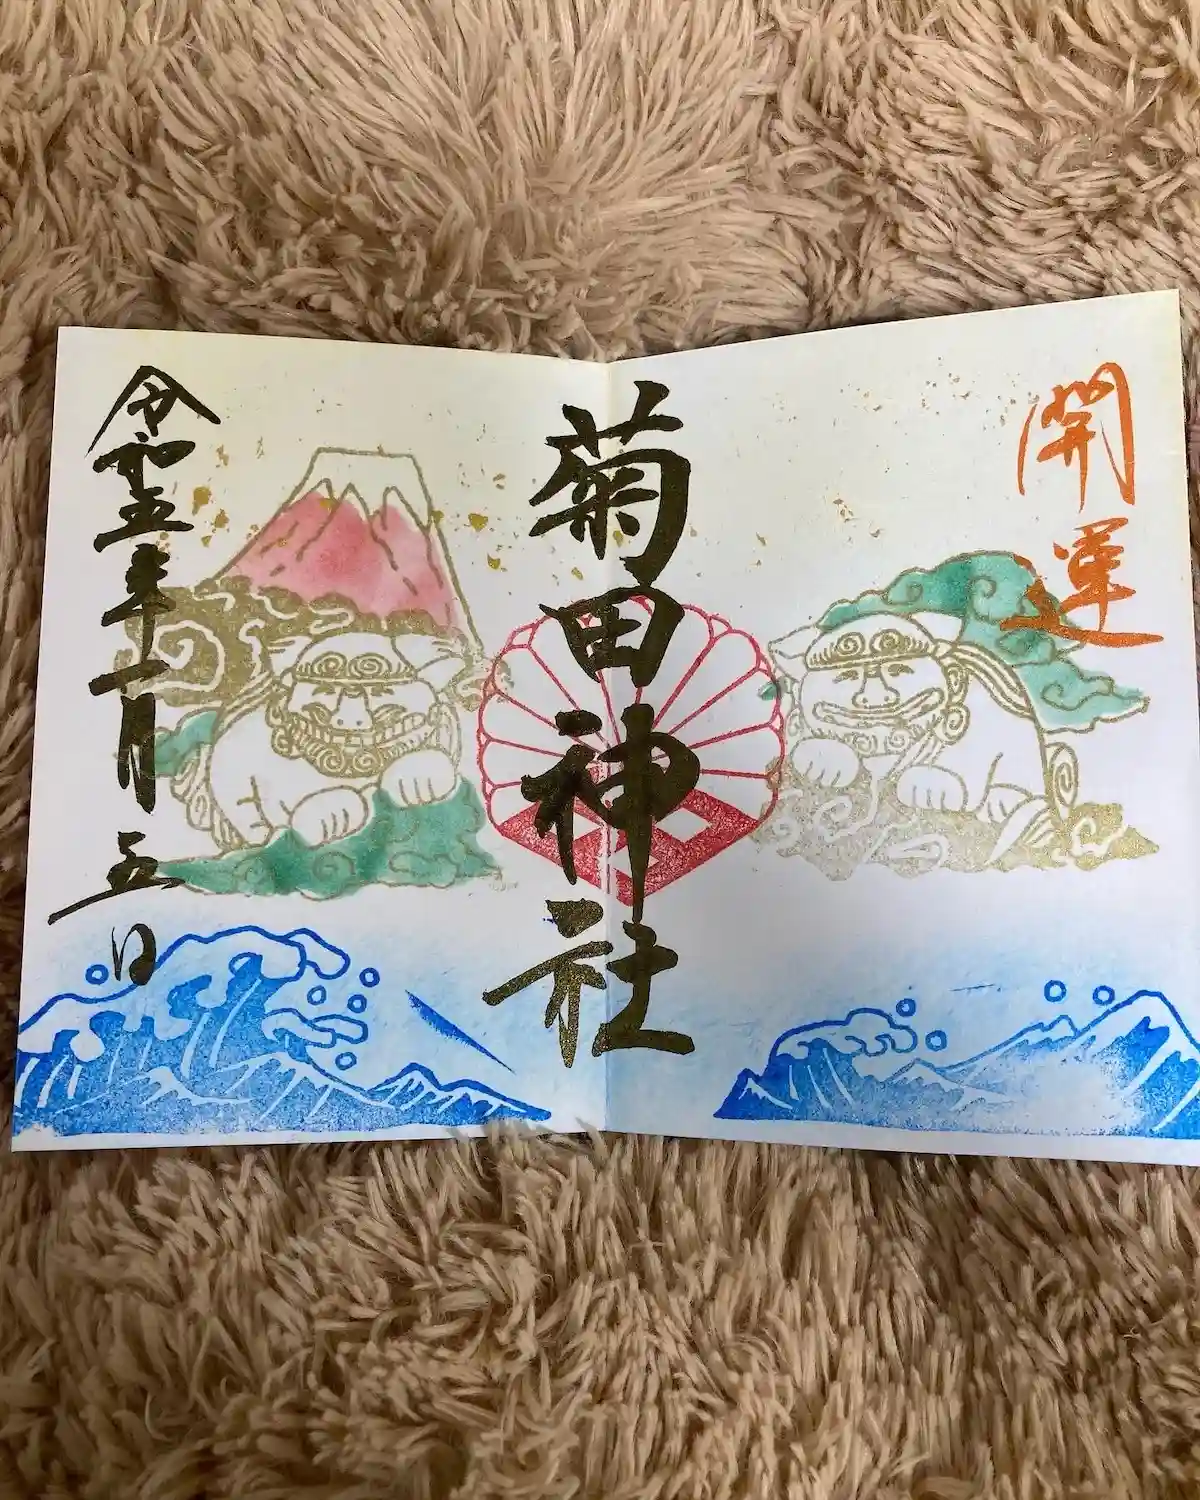 開運
菊田神社
令和五年一月五日